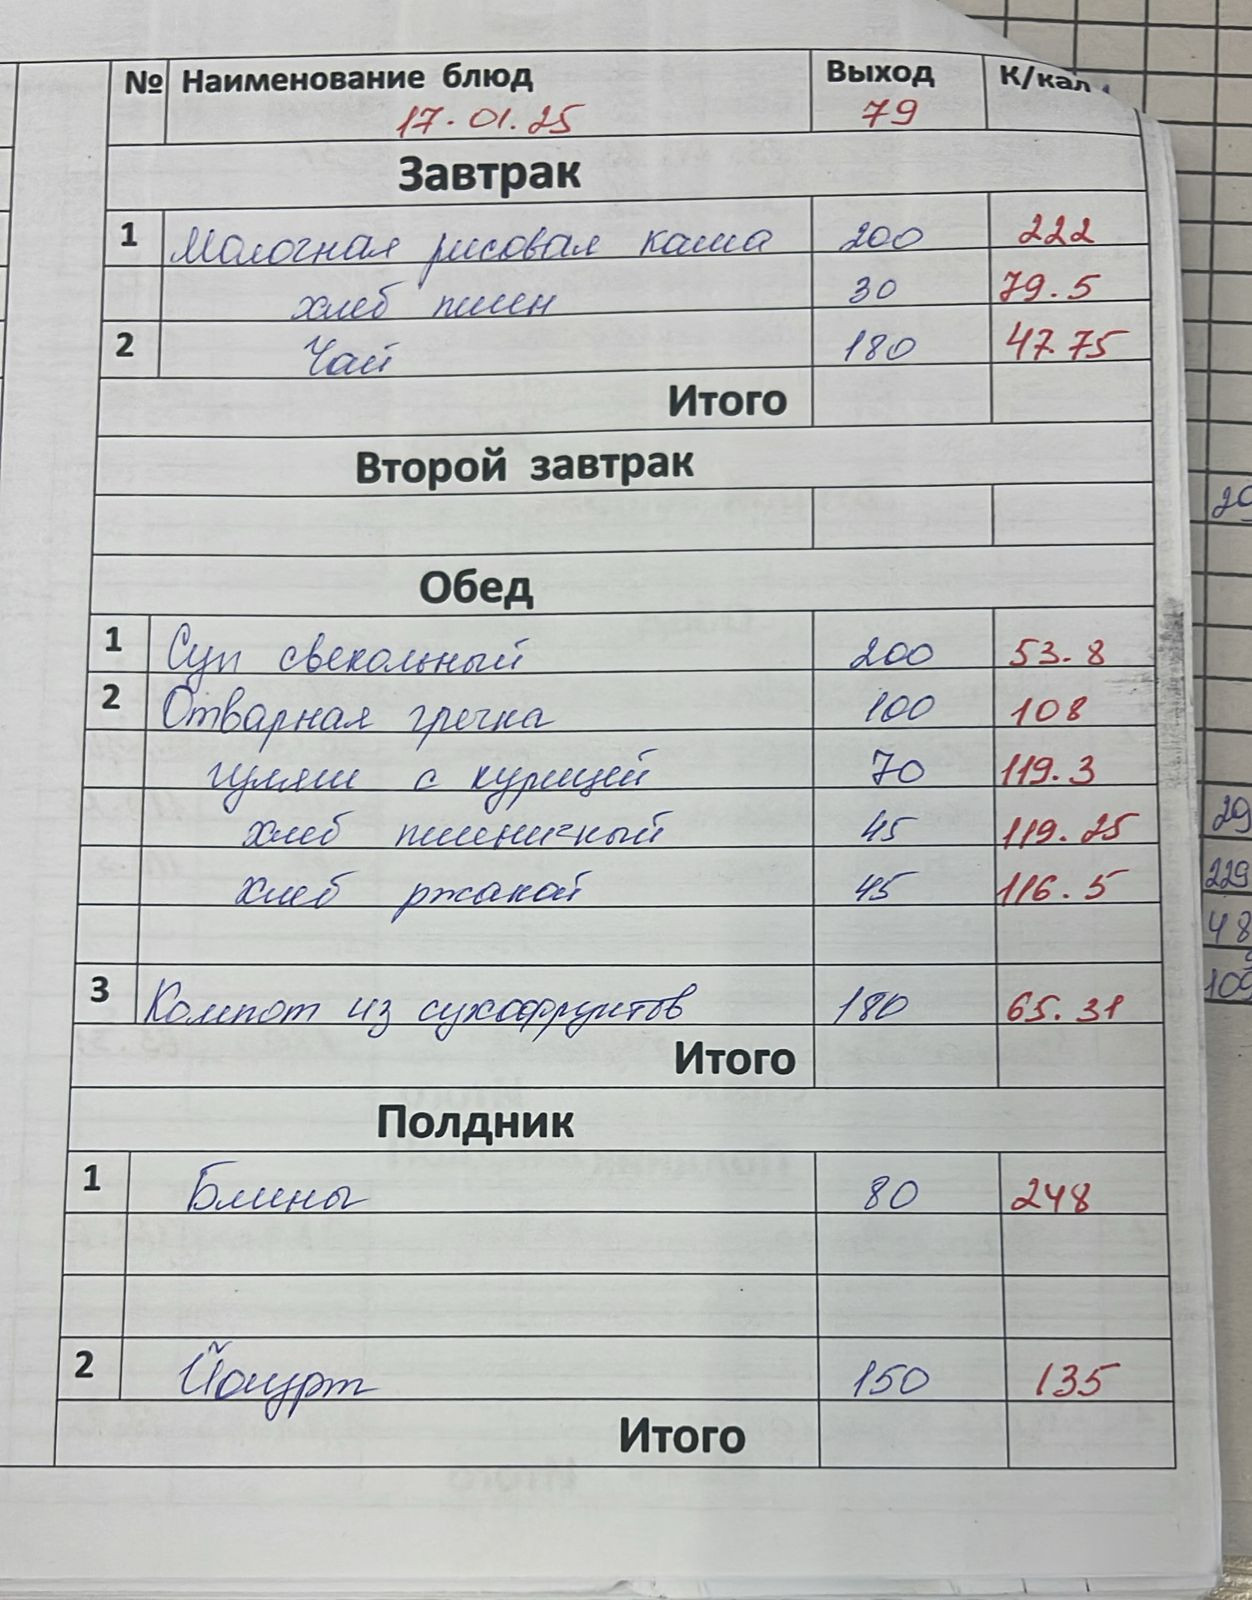 № Наименование блюд Выход К/кал
17.01.25 79
Завтрак
1 Молочная рисовая каша 200 222
хлеб пшен 30 79.5
2 Чай 180 47.75
Итого
Второй завтрак
Обед
1 Суп свекольный 200 53.8
2 Отварная гречка 100 108
гуляш с курицей 70 119.3
хлеб пшеничный 45 119.25
хлеб ржаной 45 116.5
3 Компот из сухофруктов 180 65.31
Итого
Полдник
1 Блины 80 248
2 Йогурт 150 135
Итого
29
229
48